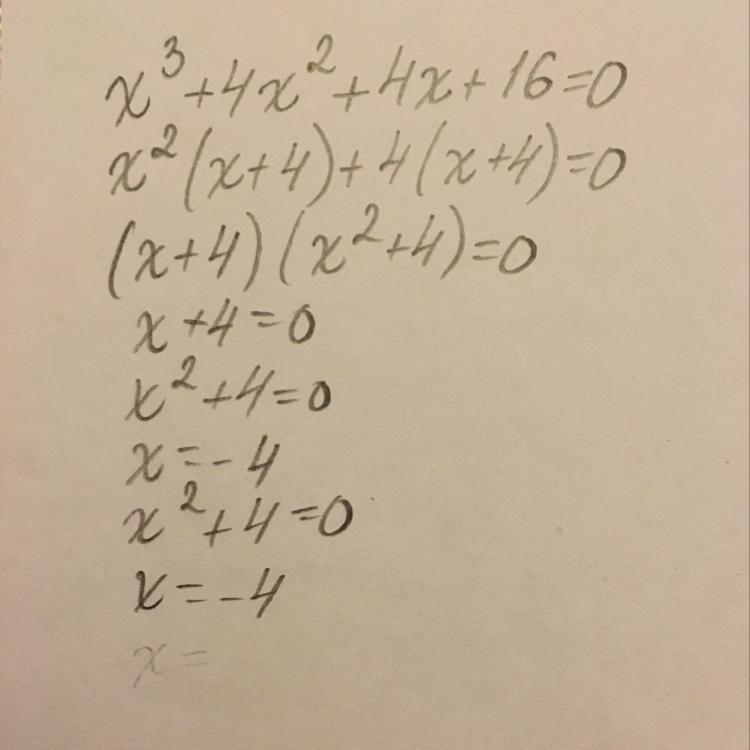 x³+4x²+4x+16=0
x²(x+4)+4(x+4)=0
(x+4)(x²+4)=0
x+4=0
x²+4=0
x=-4
x²+4=0
x=-4
x=